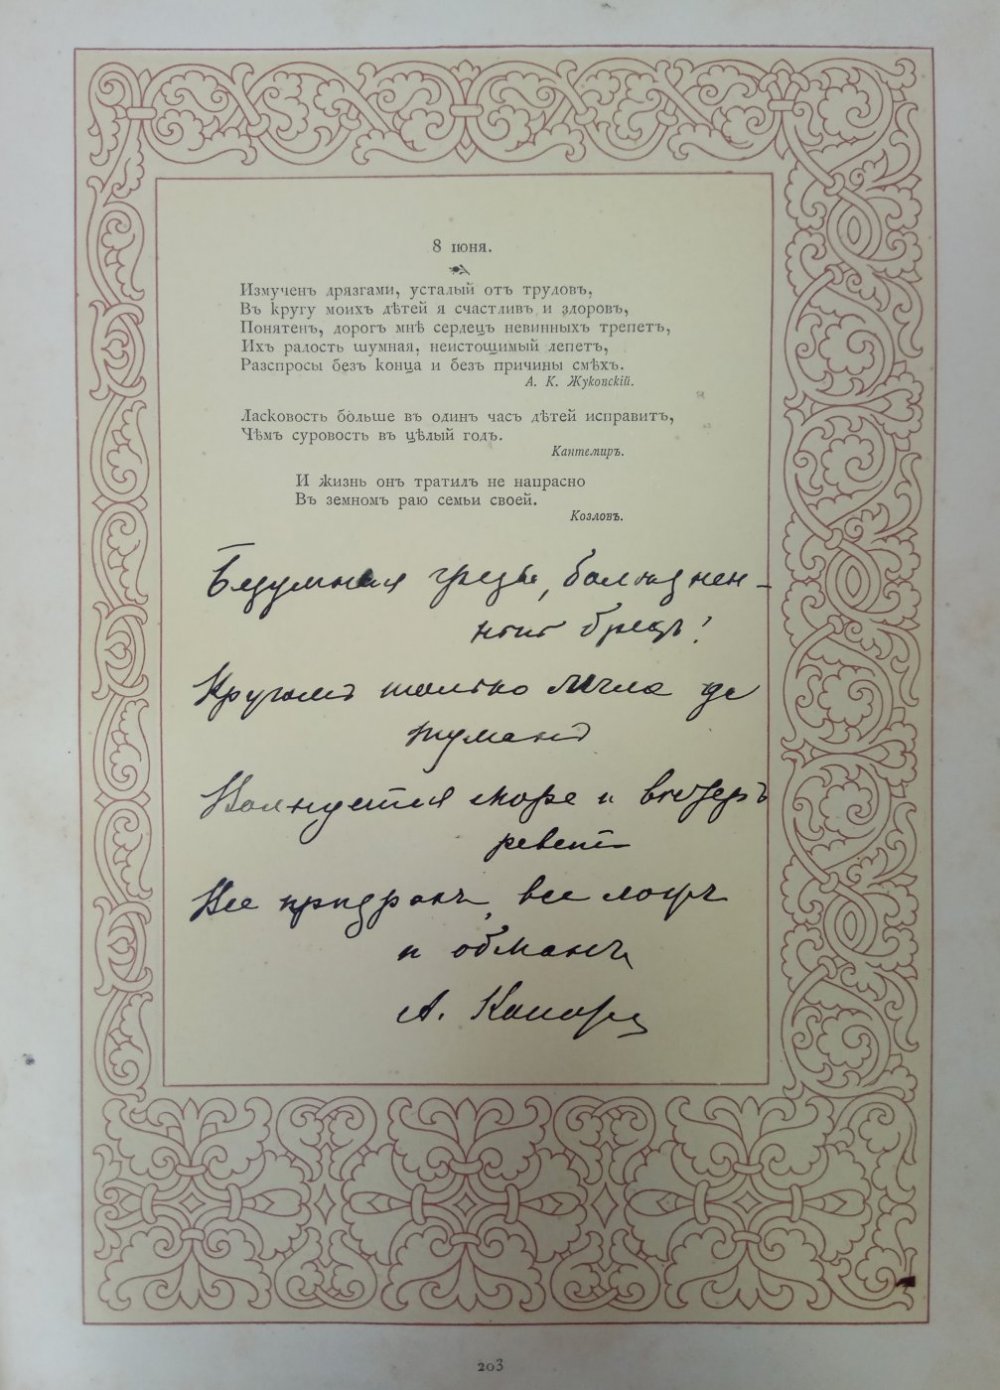 8 июня.
Измученъ дрязгами, усталый отъ трудовъ,
Въ кругу моихъ дѣтей я счастливъ и здоровъ,
Понятенъ, дорогъ мнѣ сердецъ невинныхъ трепетъ,
Ихъ радость шумная, неистощимый лепетъ,
Разспросы безъ конца и безъ причины смѣхъ.
А. К. Жуковскій.
Ласковость больше въ одинъ часъ дѣтей исправитъ,
Чѣмъ суровость въ цѣлый годъ.
Кантемиръ.
И жизнь онъ тратилъ не напрасно
Въ земномъ раю семьи своей.
Козловъ.
Безумная греза, болѣзнен-
ный бредъ!
Кругомъ только мгла да
туманъ
Волнуется море и вѣтеръ
ревет
Все призракъ, все ложь
и обманъ
А.
203